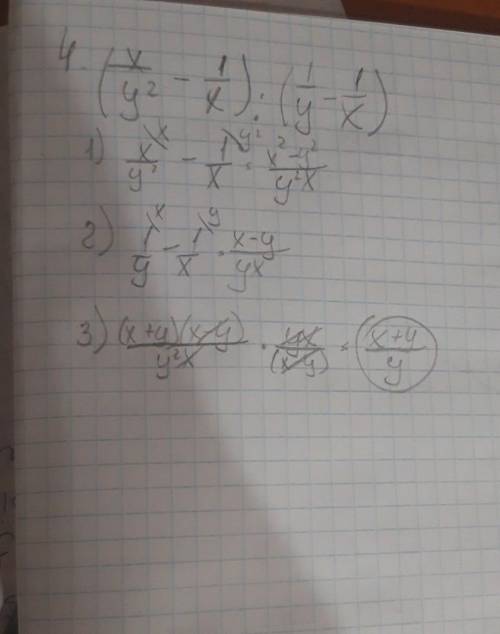 4. (x/y² - 1/x) : (1/y - 1/x)
1) x\x/y² - 1\y²/x = x²-y²/y²x
2) 1\x/y - 1\y/x = x-y/yx
3) (x+y)(x-y)/y²x · yx/(x-y) = x+y/y